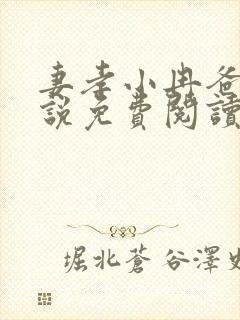 妻孝小冉爸
說免費閱讀
堀北蒼谷澤